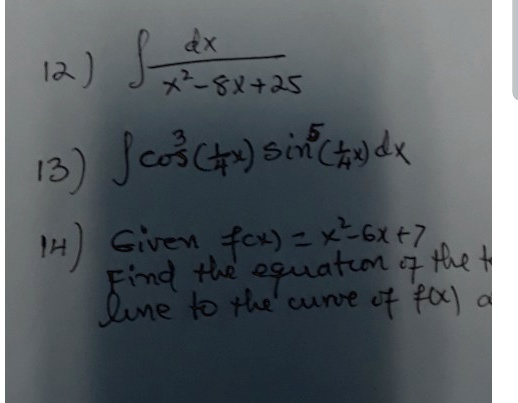 12) ∫ dx / (x²-8x+25)
13) ∫ cos³(¼x) sin⁵(¼x) dx
14) Given f(x) = x²-6x+7
Find the equation of the
line to the curve of f(x)